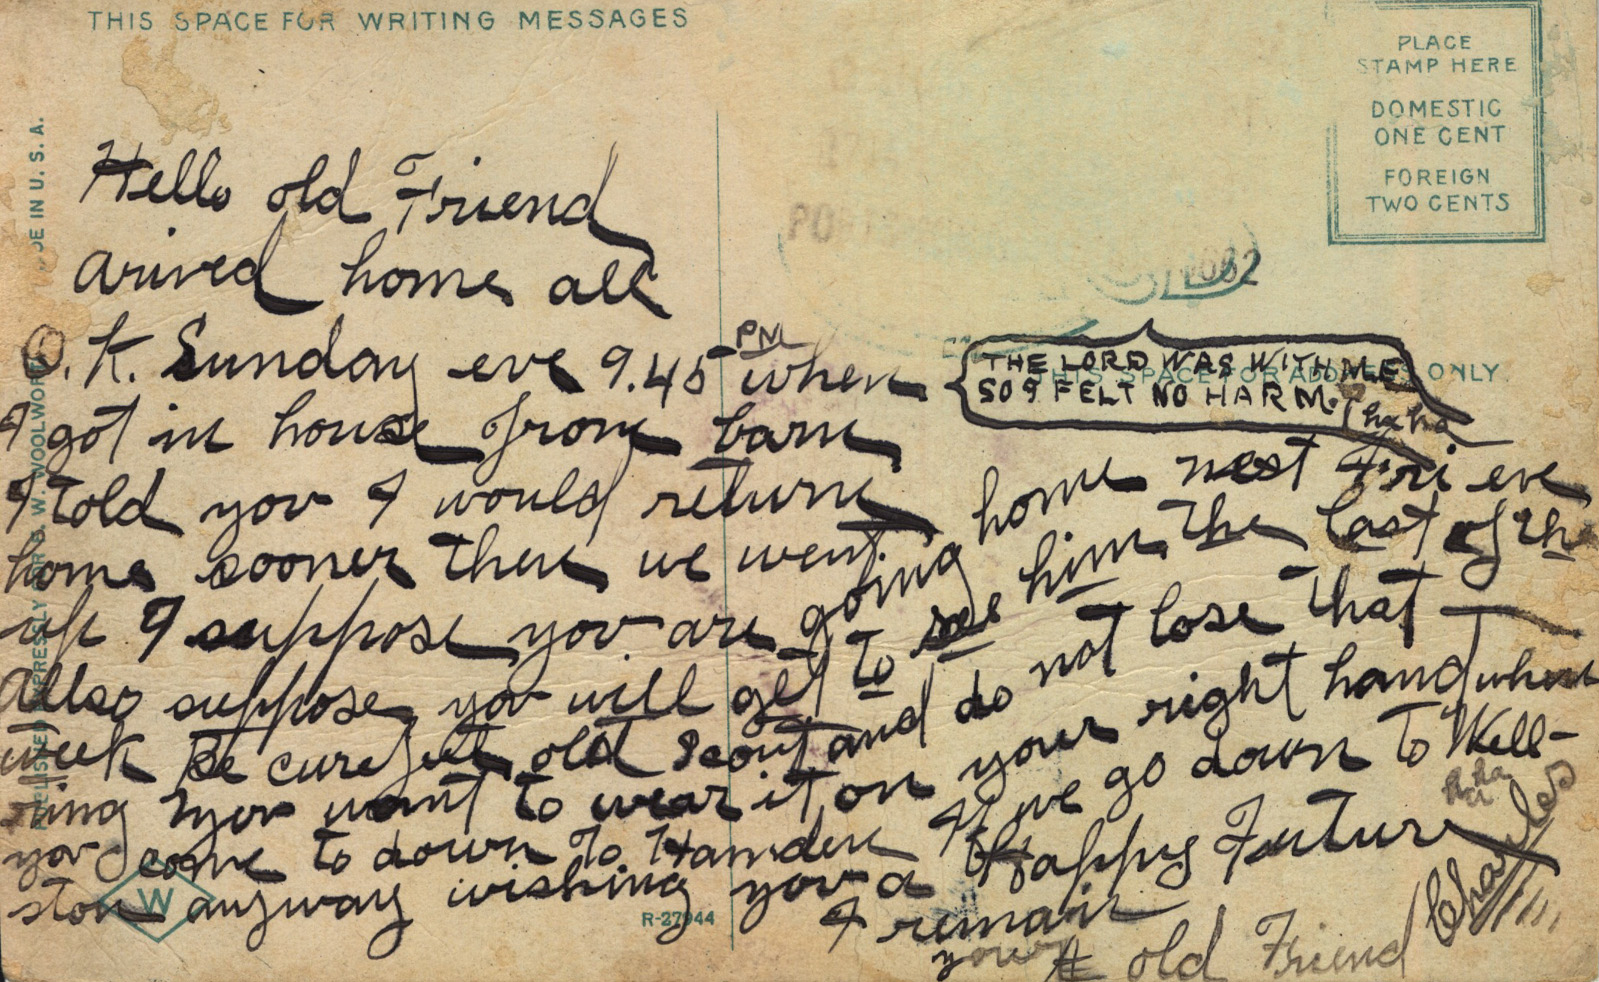 THIS SPACE FOR WRITING MESSAGES
PLACE
STAMP HERE
DOMESTIC
ONE CENT
FOREIGN
TWO CENTS
Hello old Friend
arived home all
O.K. Sunday eve 9.45 PM when
I got in house from barn
THE LORD WAS WITH ME
SO I FELT NO HARM.
ha ha
THIS SPACE FOR ADDRESS ONLY
I told you I would return
home sooner then we went
up I suppose you are going home next Fri eve
Allso suppose you will get to see him the last of the
week Be careful old Scout and do not lose that
ring you want to wear it on your right hand when
you come to down to Hamden If we go down to Well-
ston anyway wishing you a Happy Future
ha ha
I remain
your
old Friend
Charles
W
R-27944
MADE IN U. S. A.
PUBLISHED EXPRESSLY FOR F. W. WOOLWORTH